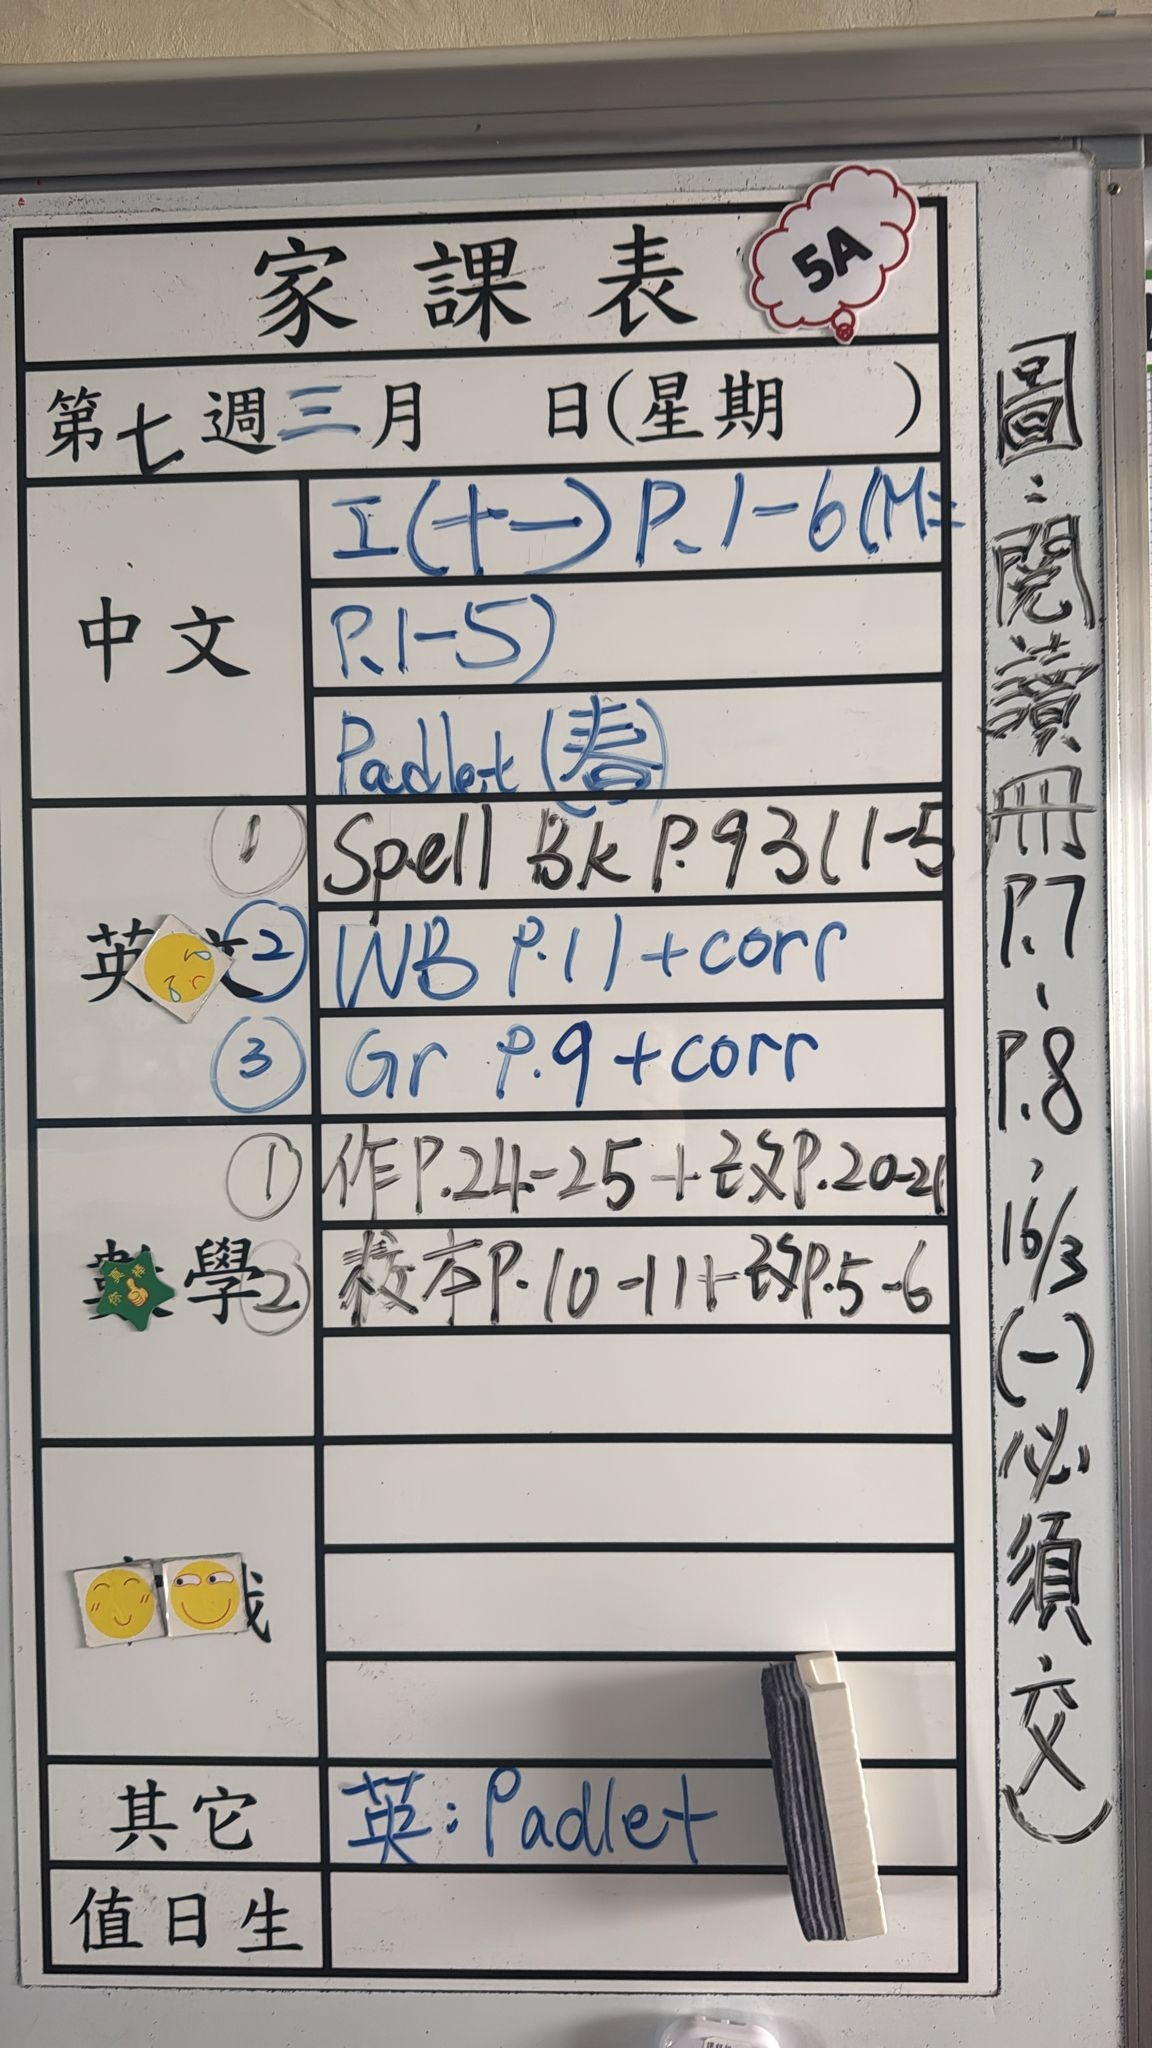 家課表
5A
第七週三月 日(星期 )
中文
工(十一) P.1-6(M:
P.1-5)
Padlet (春)
英文
① Spell Bk P.93(1-5
② WB P.11+corr
③ Gr P.9+corr
數學
① 作P.24-25+改P.20-21
② 校本P.10-11+改P.5-6
你真棒
其它
英:Padlet
值日生
圖:閱讀冊P.7-P.8,16/3(一)必須交)